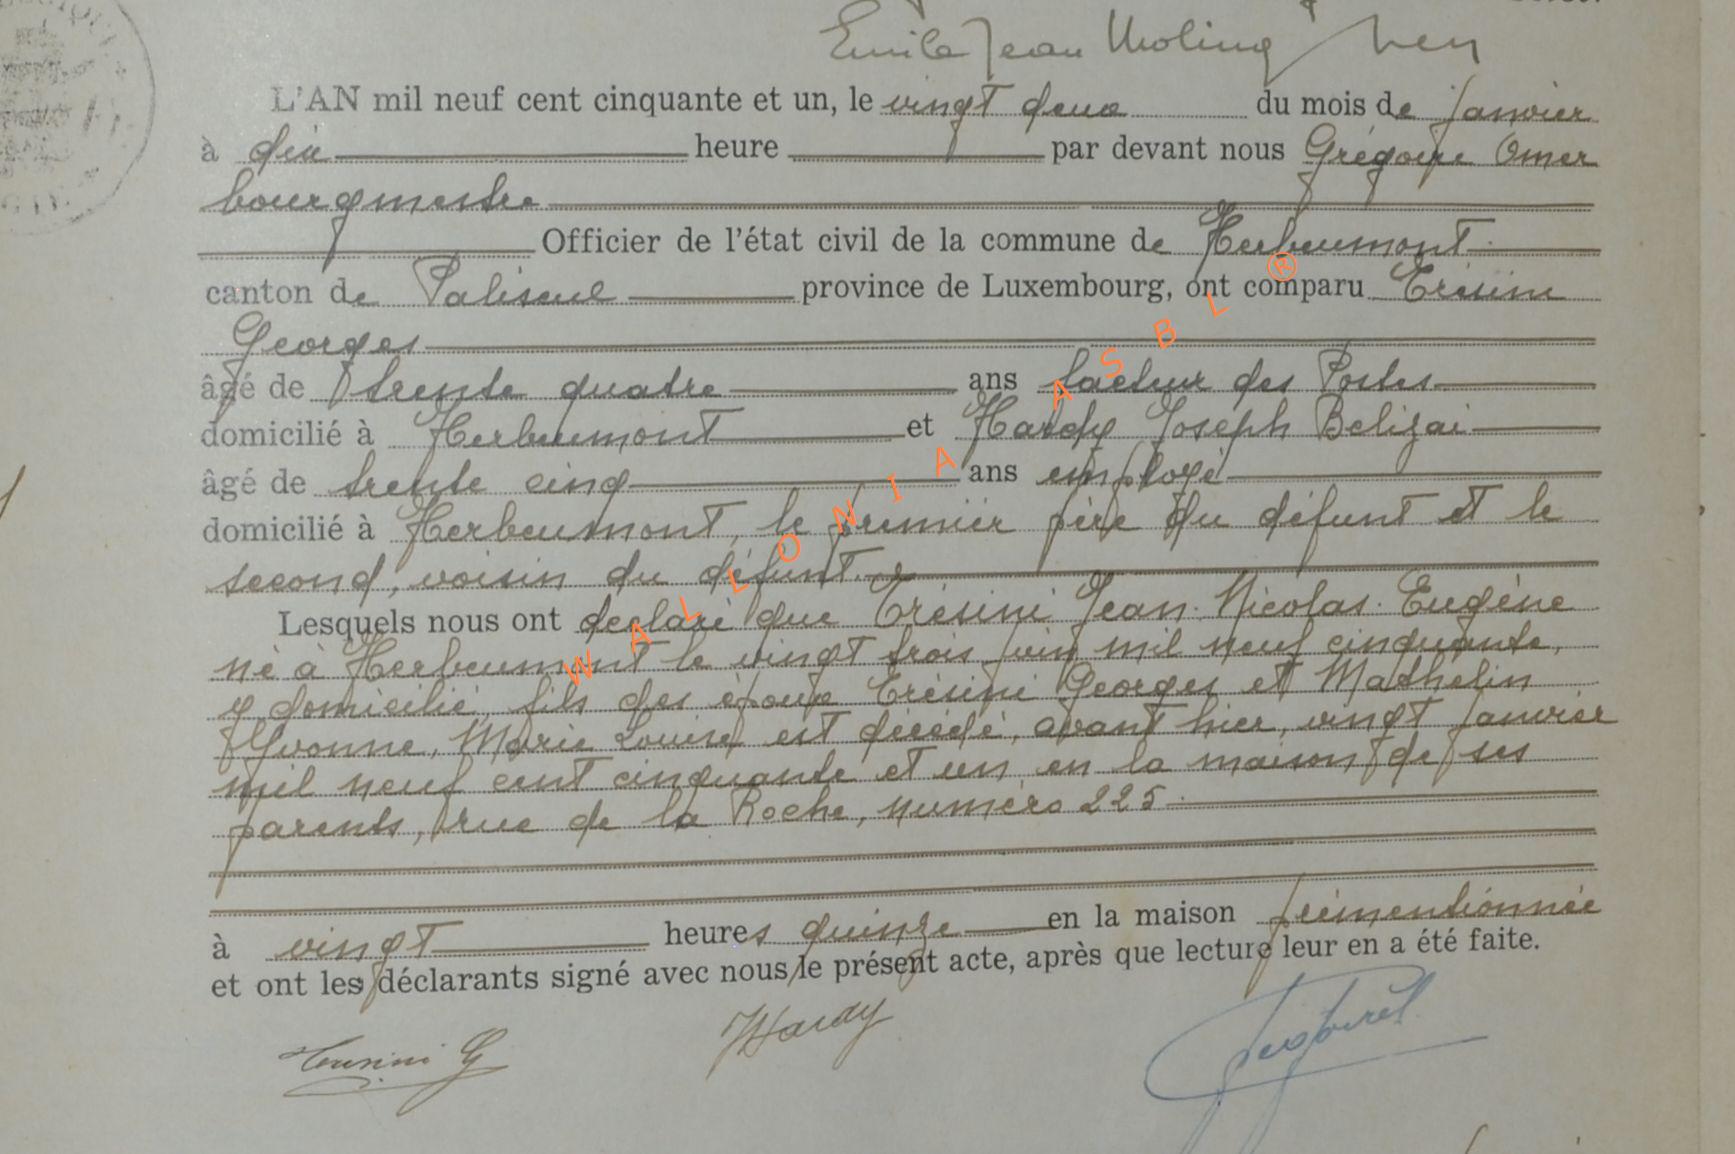 Emile Jean
L'AN mil neuf cent cinquante et un, le vingt deux du mois de janvier
à dix heure par devant nous Grégoire Omer
bourgmestre
Officier de l'état civil de la commune de Herbeumont
canton de Paliseul province de Luxembourg, ont comparu Trésini
Georges
âgé de trente quatre ans facteur des Postes
domicilié à Herbeumont et Hardy Joseph Belizai
âgé de trente cinq ans employé
domicilié à Herbeumont, le premier père du défunt et le
second, voisin du défunt.
Lesquels nous ont déclaré que Trésini Jean. Nicolas. Eugène
né à Herbeumont le vingt trois juin mil neuf cinquante,
y domicilié, fils des époux Trésini Georges et Mathelin
Yvonne, Marie Louise est décédé, avant hier, vingt janvier
mil neuf cent cinquante et un en la maison de ses
parents, rue de la Roche, numéro 225
à vingt heures quinze en la maison prémentionnée
et ont les déclarants signé avec nous le présent acte, après que lecture leur en a été faite.
Trésini G JHardy
WALLONIA ASBL ®